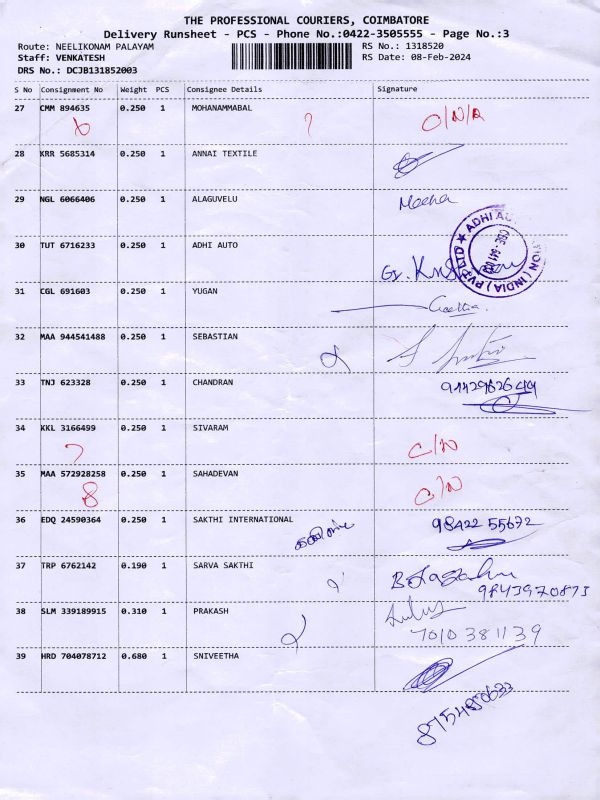 THE PROFESSIONAL COURIERS, COIMBATORE
Delivery Runsheet - PCS - Phone No.:0422-3505555 - Page No.:3
Route: NEELIKONAM PALAYAM RS No.: 1318520
Staff: VENKATESH RS Date: 08-Feb-2024
DRS No.: DCJB131852003
S No Consignment No Weight PCS Consignee Details Signature
27 CMM 894635 0.250 1 MOHANAMMABAL
6 ?
28 KRR 5685314 0.250 1 ANNAI TEXTILE
29 NGL 6066406 0.250 1 ALAGUVELU Meena
30 TUT 6716233 0.250 1 ADHI AUTO
31 CGL 691603 0.250 1 YUGAN Geetha
32 MAA 944541488 0.250 1 SEBASTIAN
33 TNJ 623328 0.250 1 CHANDRAN
34 KKL 3166499 0.250 1 SIVARAM
7 C/N
35 MAA 572928258 0.250 1 SAHADEVAN
8 C/N
36 EDQ 24590364 0.250 1 SAKTHI INTERNATIONAL 98422 55672
37 TRP 6762142 0.190 1 SARVA SAKTHI
9843970873
38 SLM 339189915 0.310 1 PRAKASH
7010381139
39 HRD 704078712 0.680 1 SNIVEETHA